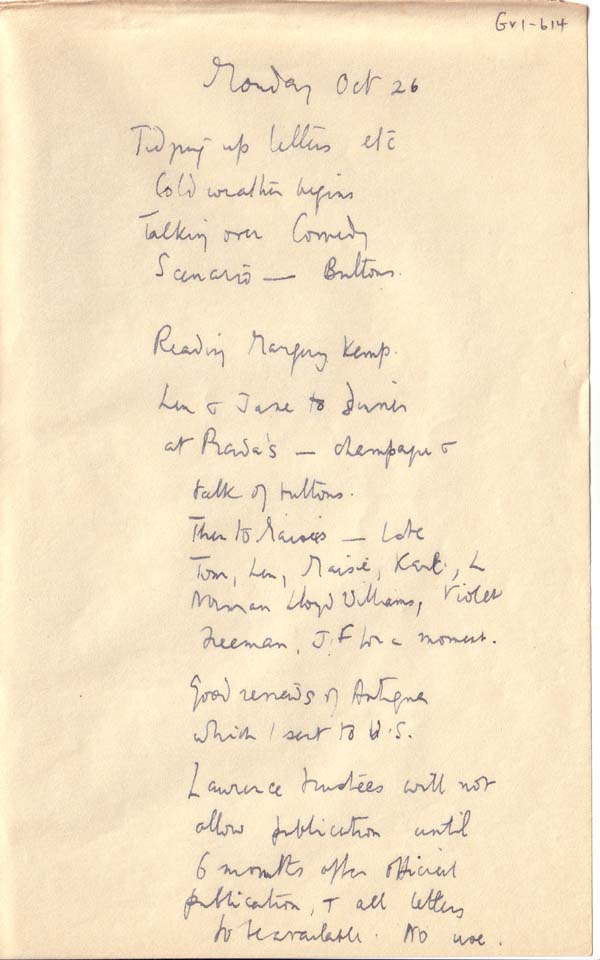 Gv1-614
Monday Oct 26
Tidying up letters etc
Cold weather begins
Talking over Comedy
Scenario — Buttons.
Reading Margery Kemp.
Len & Jane to dinner
at Prada's — champagne &
talk of buttons.
Then to Maisies — Late
Tom, Len, Maisie, Karl, L
Norman Lloyd Williams, Violet
Freeman, J.F for a moment.
Good reviews of Antigua
which I sent to U.S.
Lawrence trustees will not
allow publication until
6 months after official
publication, + all letters
to be available. No use.